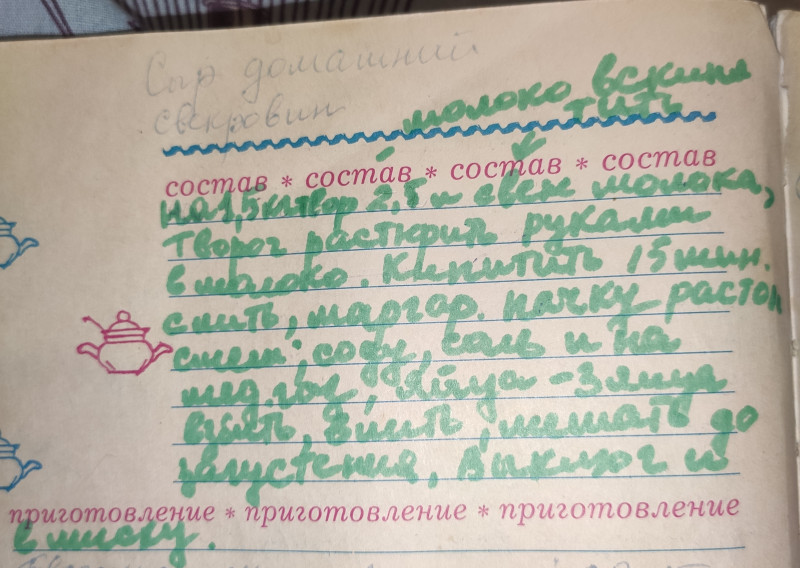 Сыр домашний
свекровин
молоко вскипя
тить
состав * состав * состав * состав
на 1,5 кг твор 2,5 л свеж молока,
творог растирить руками
в молоко. Кипитить 15 мин.
слить, маргар. пачку растоп
смеш, соду, соль и на
мед. , яйца - 3 яйца
взбить, влить, мешать до
загустения, выключ и
приготовление * приготовление * приготовление
в миску.